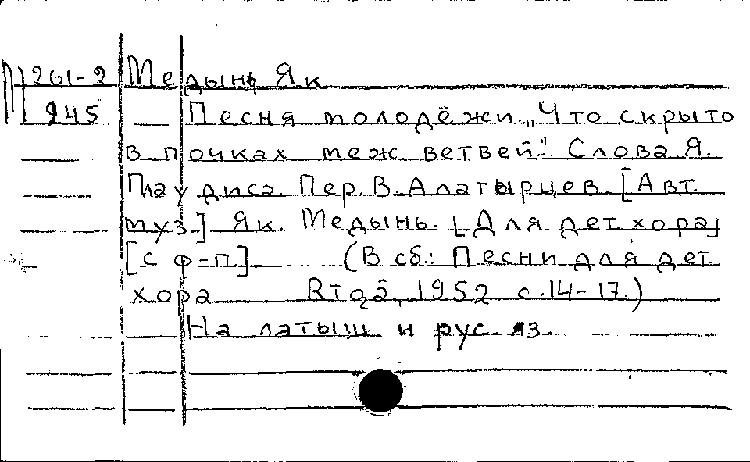 П 261-2 Медынь Як
945
Песня молодёжи „Что скрыто
в почках меж ветвей". Слова Я.
Плаудиса. Пер. В. Алатырцев. [Авт.
муз.] Як. Медынь. [Для дет хора]
[с ф-п] (В сб: Песни для дет
хора Rīgā, 1952 с. 14-17.)
На латыш и рус. яз.